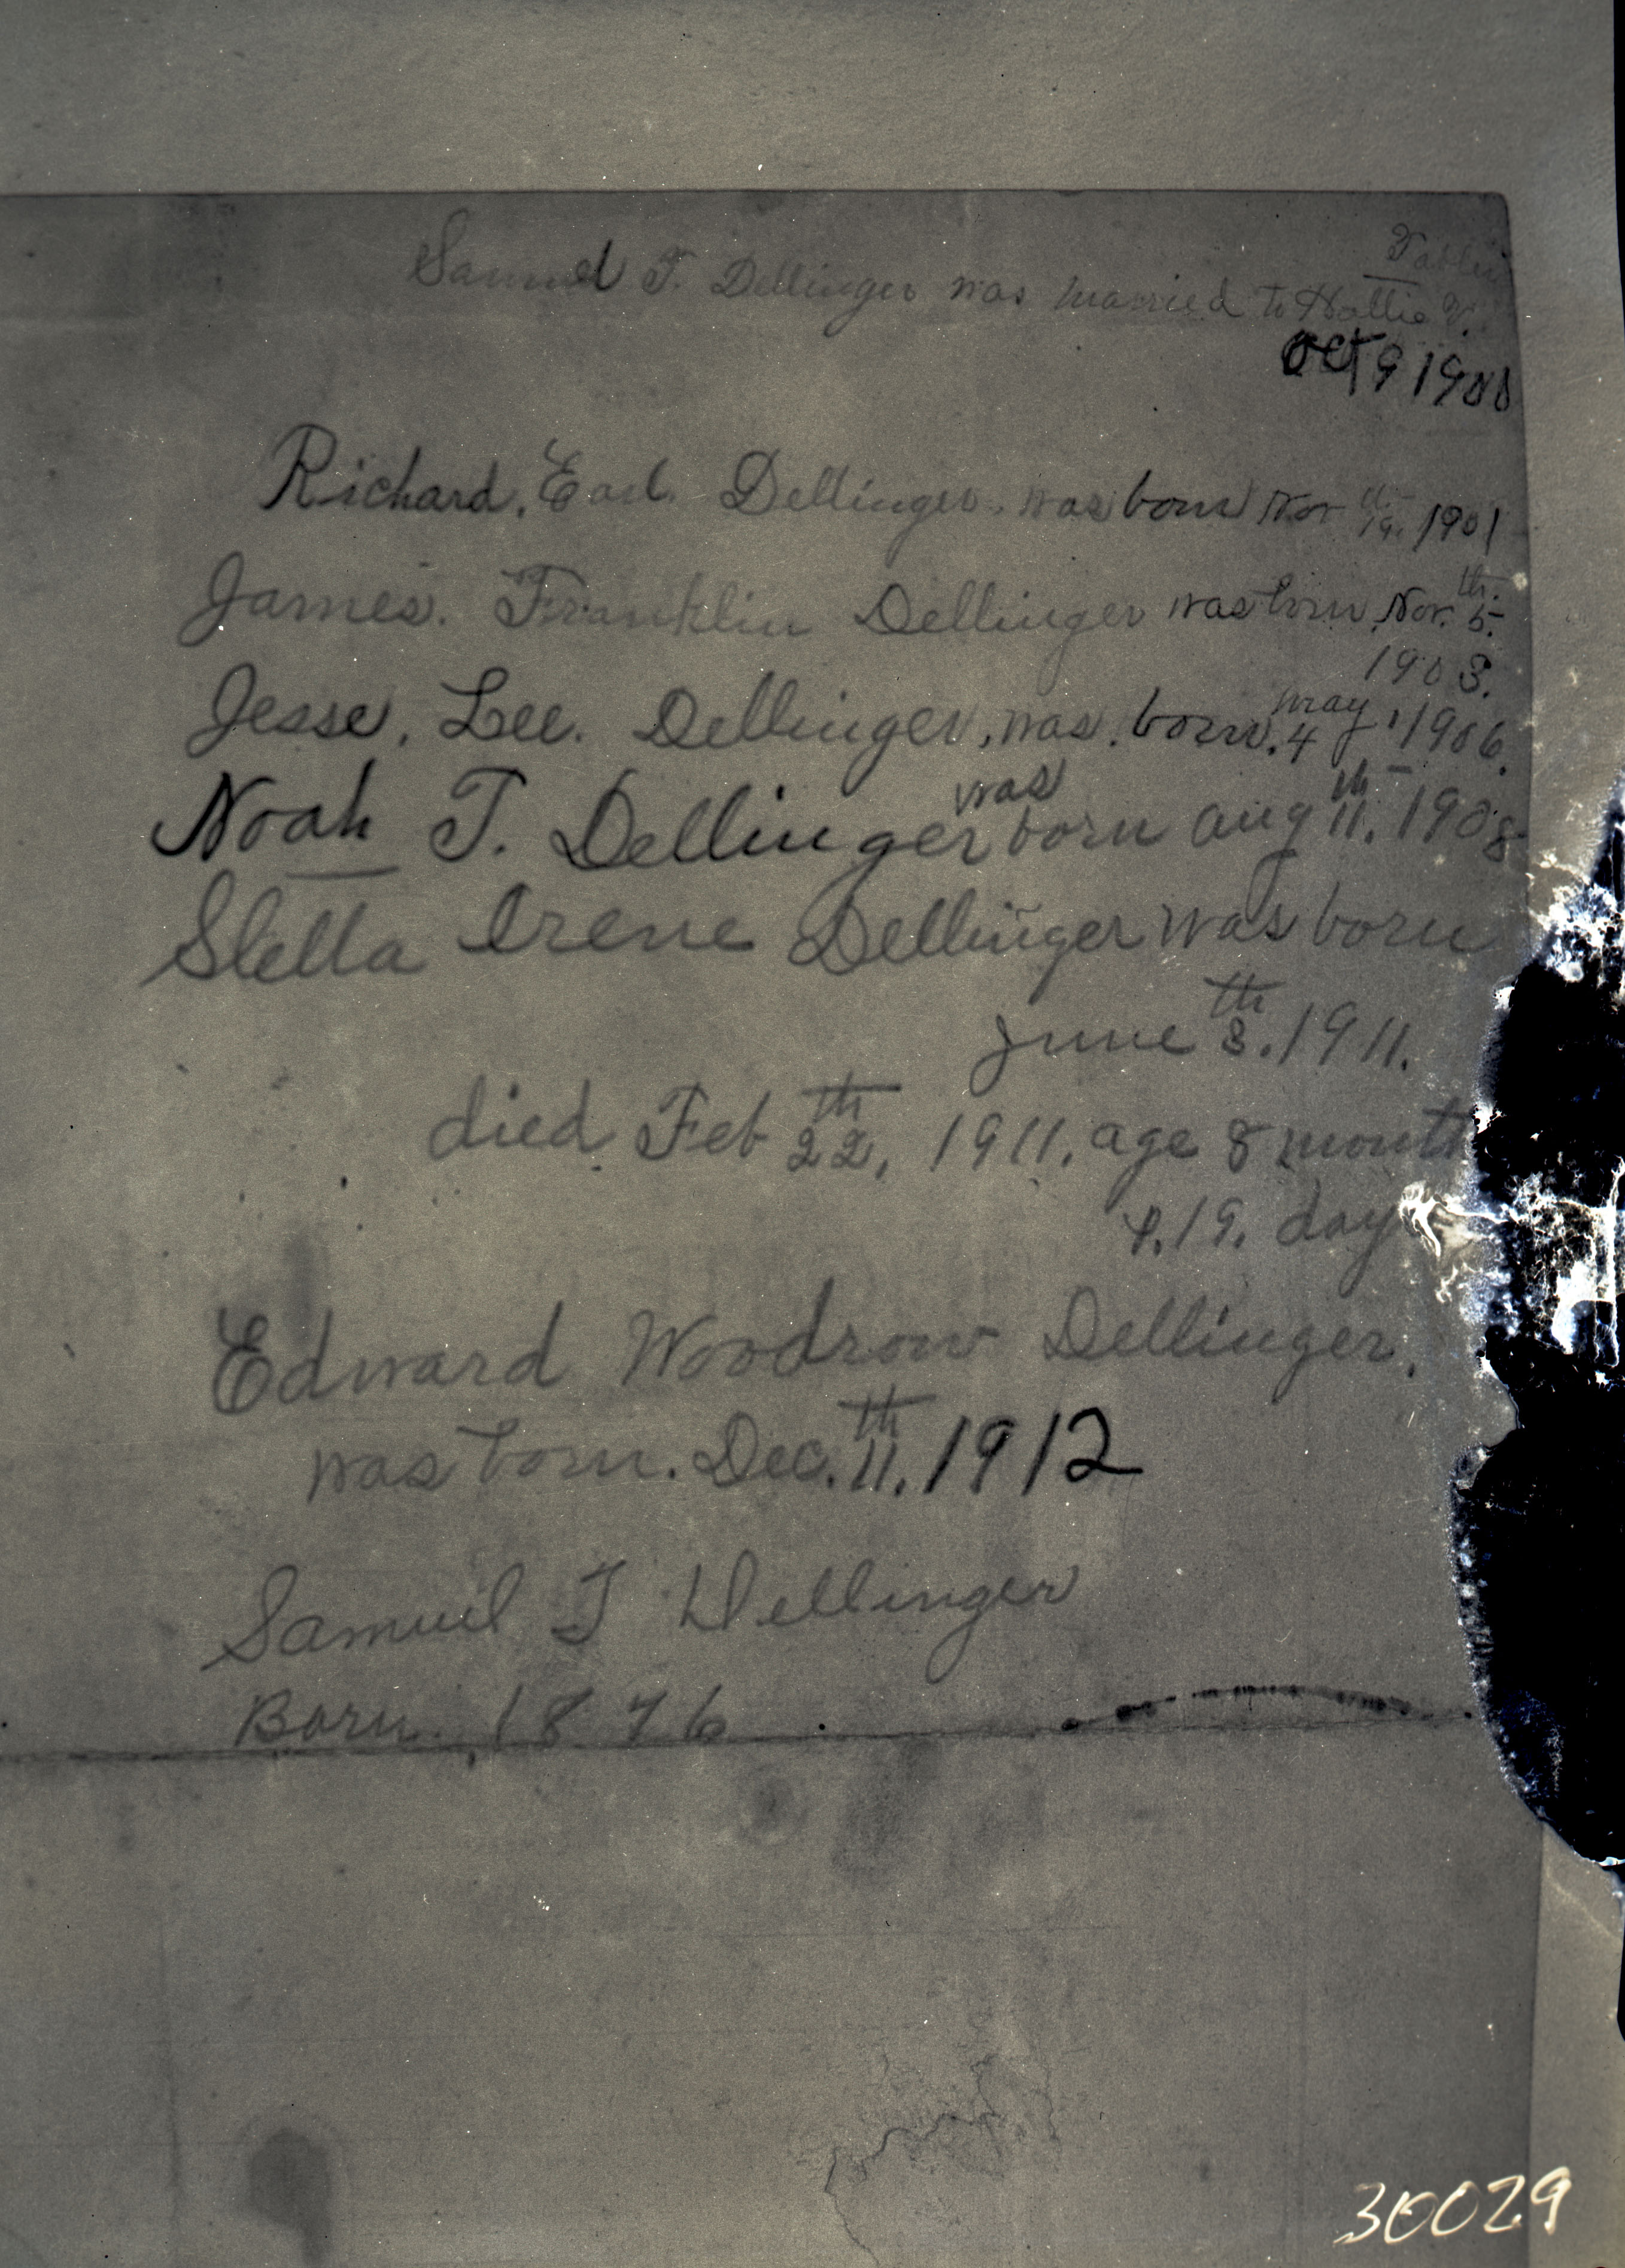 Samuel T. Dellinger was married to Hallie V.
Oct 9 1900
Richard. Earl. Dellinger. was born Nov 19. 1901
James. Franklin Dellinger was born Nov. 5th.
1903.
Jesse. Lee. Dellinger, was. born. May 4, 1906.
Noah T. Dellinger was born Aug 11th. 1908
Stella Irene Dellinger was born
June 3th. 1911.
died Feb 22th, 1911. age 8 month
19. day
Edward Woodrow Dellinger.
was born. Dec. 11th. 1912
Samuel T Dellinger
Born. 1876
30029